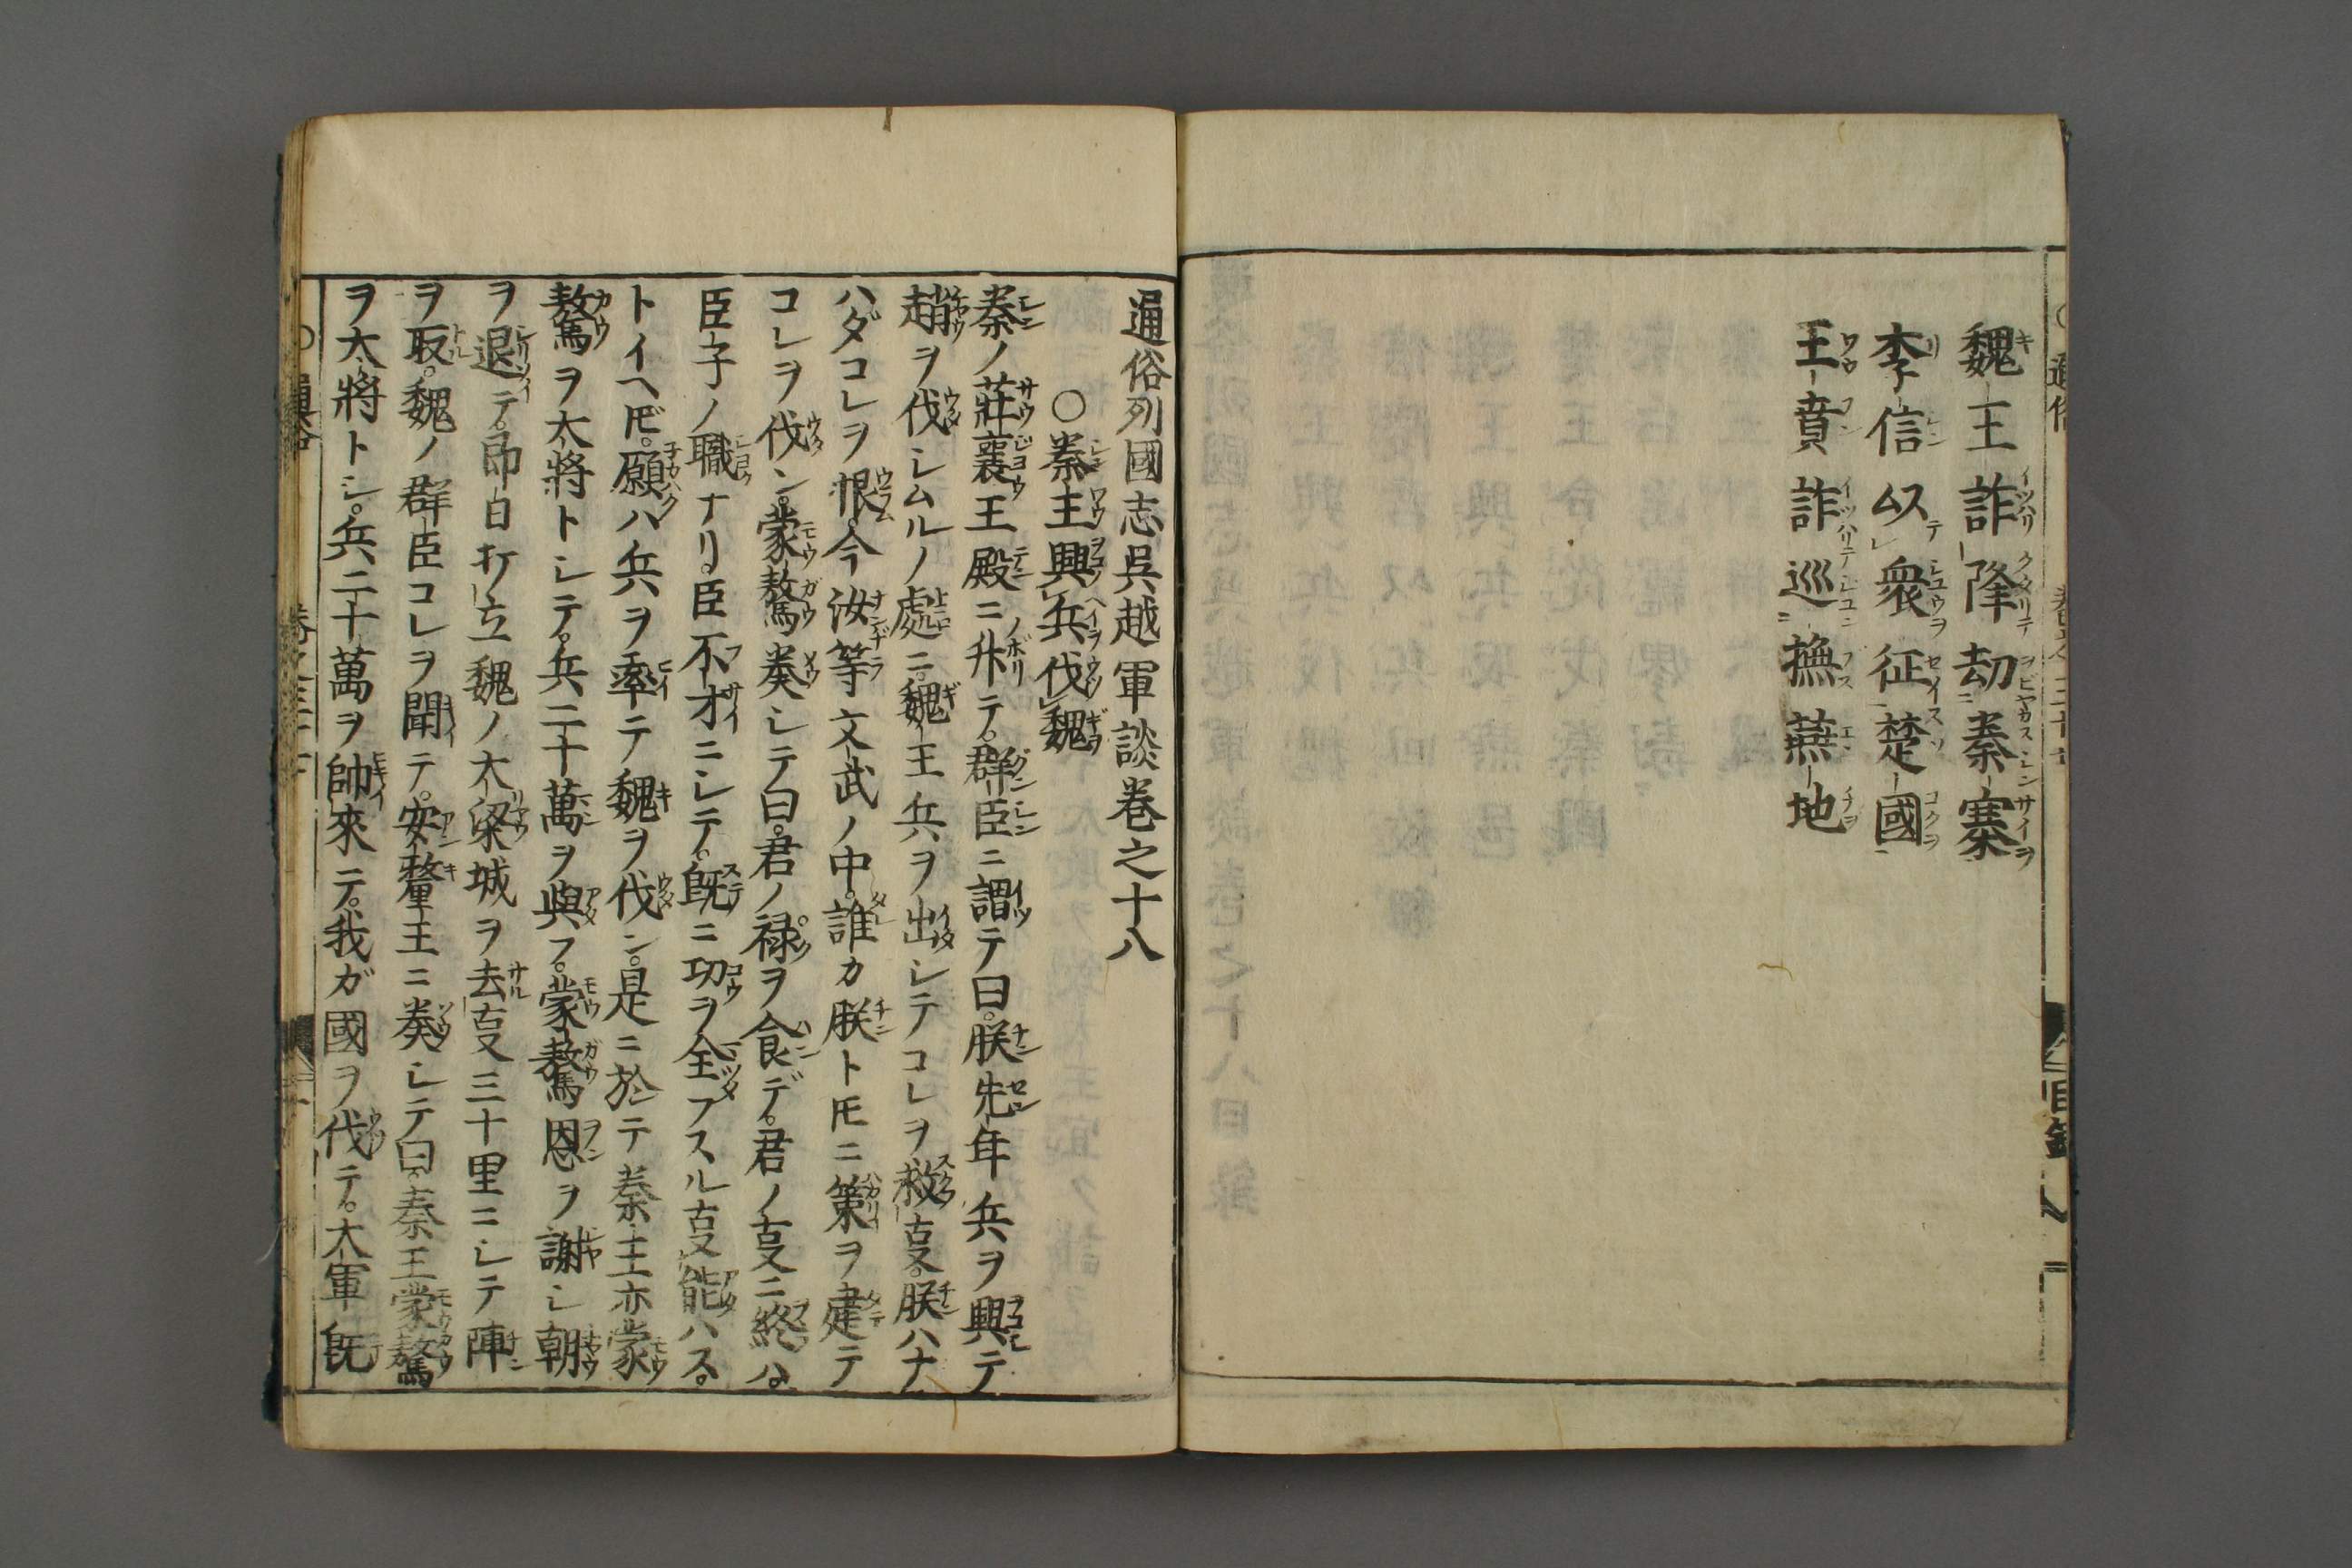 魏王詐降刼秦寨
李信以衆征楚國
王賁詐巡撫燕地
通俗列國志呉越軍談巻之十八
○秦王興兵伐魏
秦ノ莊襄王殿ニ升テ。群臣ニ謂テ曰。朕先年兵ヲ興テ
趙ヲ伐シムルノ處ニ。魏王兵ヲ出シテコレヲ救叓。朕ハナ
ハダコレヲ恨。今汝等文武ノ中。誰カ朕トモニ策ヲ建テ
コレヲ伐ン。蒙驁奏シテ曰。君ノ禄ヲ食デ。君ノ叓ニ終ハ。
臣子ノ職ナリ。臣不才ニシテ。既ニ功ヲ全フスル叓能ハス。
トイヘ𪜈。願ハ兵ヲ率テ魏ヲ伐ン。是ニ於テ秦王亦蒙
驁ヲ大將トシテ。兵二十萬ヲ與フ。蒙驁恩ヲ謝シ朝
ヲ退テ。即日打立魏ノ大梁城ヲ去叓三十里ニシテ陣
ヲ取。魏ノ群臣コレヲ聞テ。安釐王ニ奏シテ曰。秦王蒙驁
ヲ大將トシ。兵二十萬ヲ帥來テ。我ガ國ヲ伐テ。大軍既